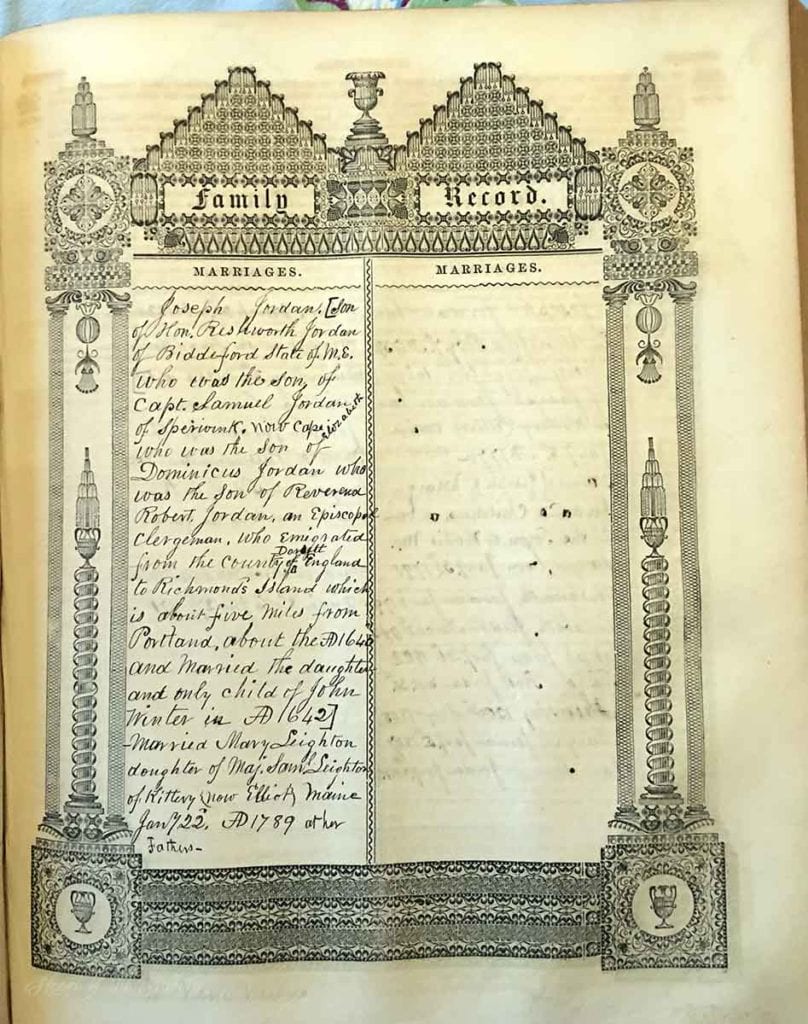 Family Record.
MARRIAGES. MARRIAGES.
Joseph Jordan, [Son
of Hon. Rishworth Jordan
of Biddeford State of M.E.
who was the Son, of
Capt. Samuel Jordan,
of Sperwink, now Cape Elizabeth
who was the Son of
Dominicus Jordan who
was the Son of Reverend
Robert, Jordan, an Episcopal
Clergeman, who emigrated
from the County of England
to Richmond's Island which
is about five miles from
Portland, about the AD 1640
and Married the daughter
and only child of John
Winter in AD 1642]
Married Mary Leighton
daughter of Maj. Saml. Leighton
of Kittery (now Elliot) Maine
Jany 22, AD 1789 at her
Fathers-